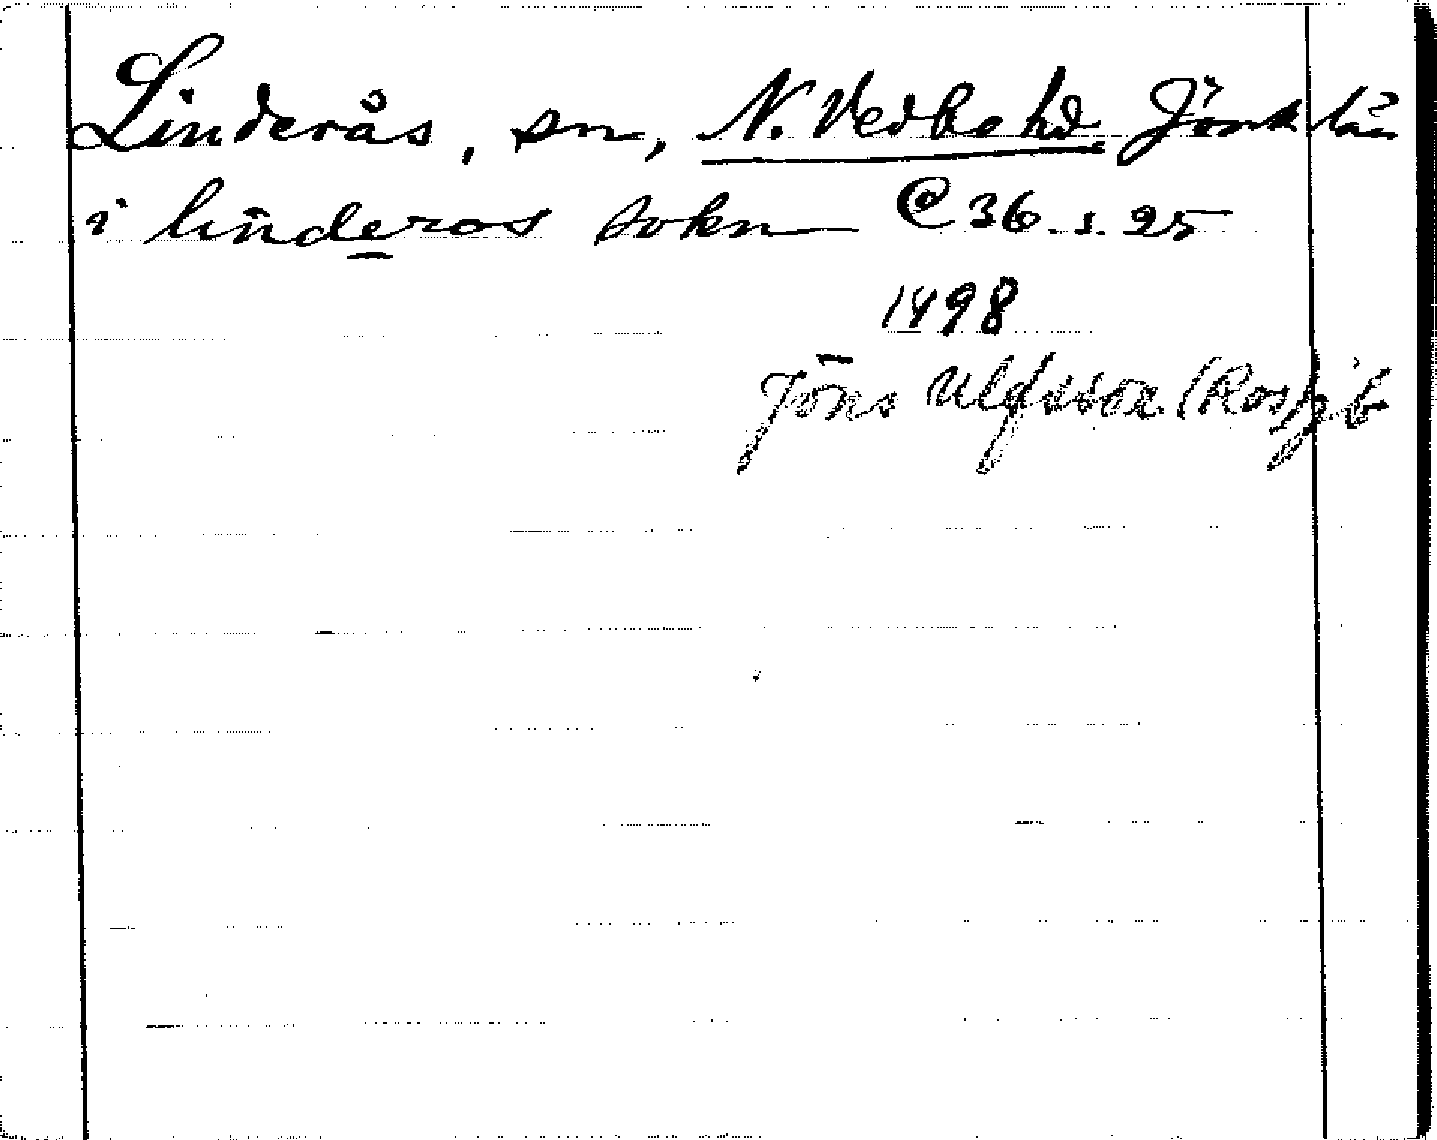 Linderås, sn, N. Vedbo hd Jönk län
i linderos sokn C 36 s. 25
1498
Jöns Ulfsson (Ros) i b